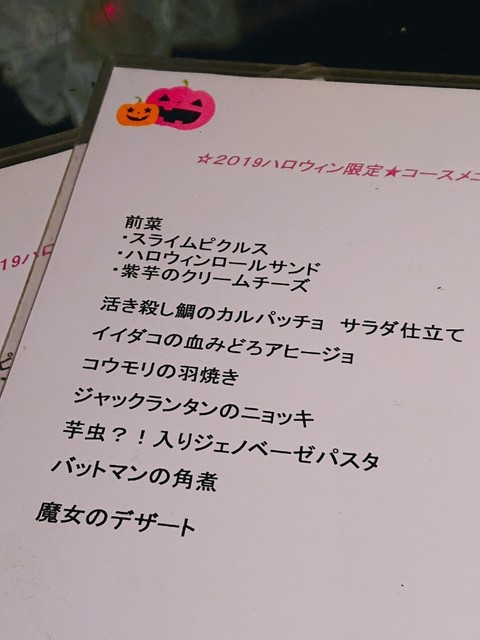 ☆2019ハロウィン限定★コースメニ
前菜
・スライムピクルス
・ハロウィンロールサンド
・紫芋のクリームチーズ
活き殺し鯛のカルパッチョ サラダ仕立て
イイダコの血みどろアヒージョ
コウモリの羽焼き
ジャックランタンのニョッキ
芋虫？！入りジェノベーゼパスタ
バットマンの角煮
魔女のデザート
19ハロ